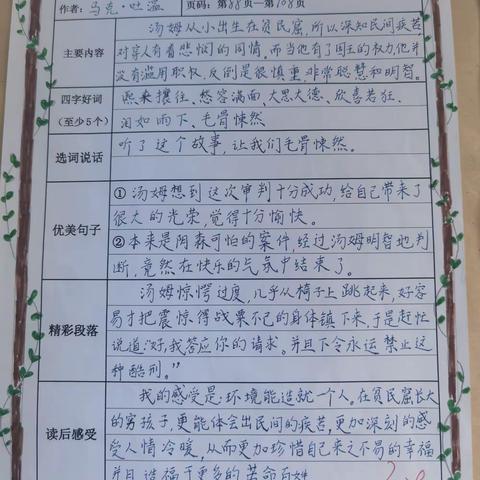 作者：马克·吐温 页码：第88页—第108页
主要内容
汤姆从小出生在贫民窟，所以深知民间疾苦
对穷人有着悲悯的同情，而当他有了国王的权力，他并
没有滥用职权，反倒是很慎重，非常聪慧和明智。
四字好词
（至少5个）
熙来攘往、怒容满面、大恩大德、欣喜若狂、
泪如雨下、毛骨悚然
选词说话
听了这个故事，让我们毛骨悚然。
优美句子
①汤姆想到这次审判十分成功，给自己带来了
很大的光荣，觉得十分愉快。
②本来是阴森可怕的案件，经过汤姆明智地判
断，竟然在快乐的气氛中结束了。
精彩段落
汤姆惊愕过度，几乎从椅子上跳起来，好容
易才把震惊得战栗不已的身体镇下来，于是赶忙
说道：“好，我答应你的请求。并且下令永远禁止这
种酷刑。”
读后感受
我的感受是：环境能造就一个人。在贫民窟长大
的穷孩子，更能体会出民间的疾苦，更加深刻的感
受人情冷暖，从而更加珍惜自己来之不易的幸福
并且造福于更多的苦命百姓